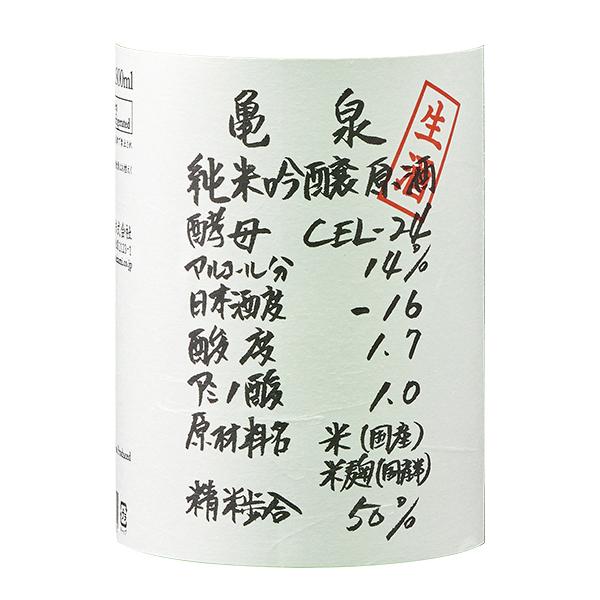 亀泉
生酒
純米吟醸原酒
酵母 CEL-24
アルコール分 14%
日本酒度 -16
酸度 1.7
アミノ酸 1.0
原材料名 米(国産)
米麹(国産米)
精米歩合 50%
300ml